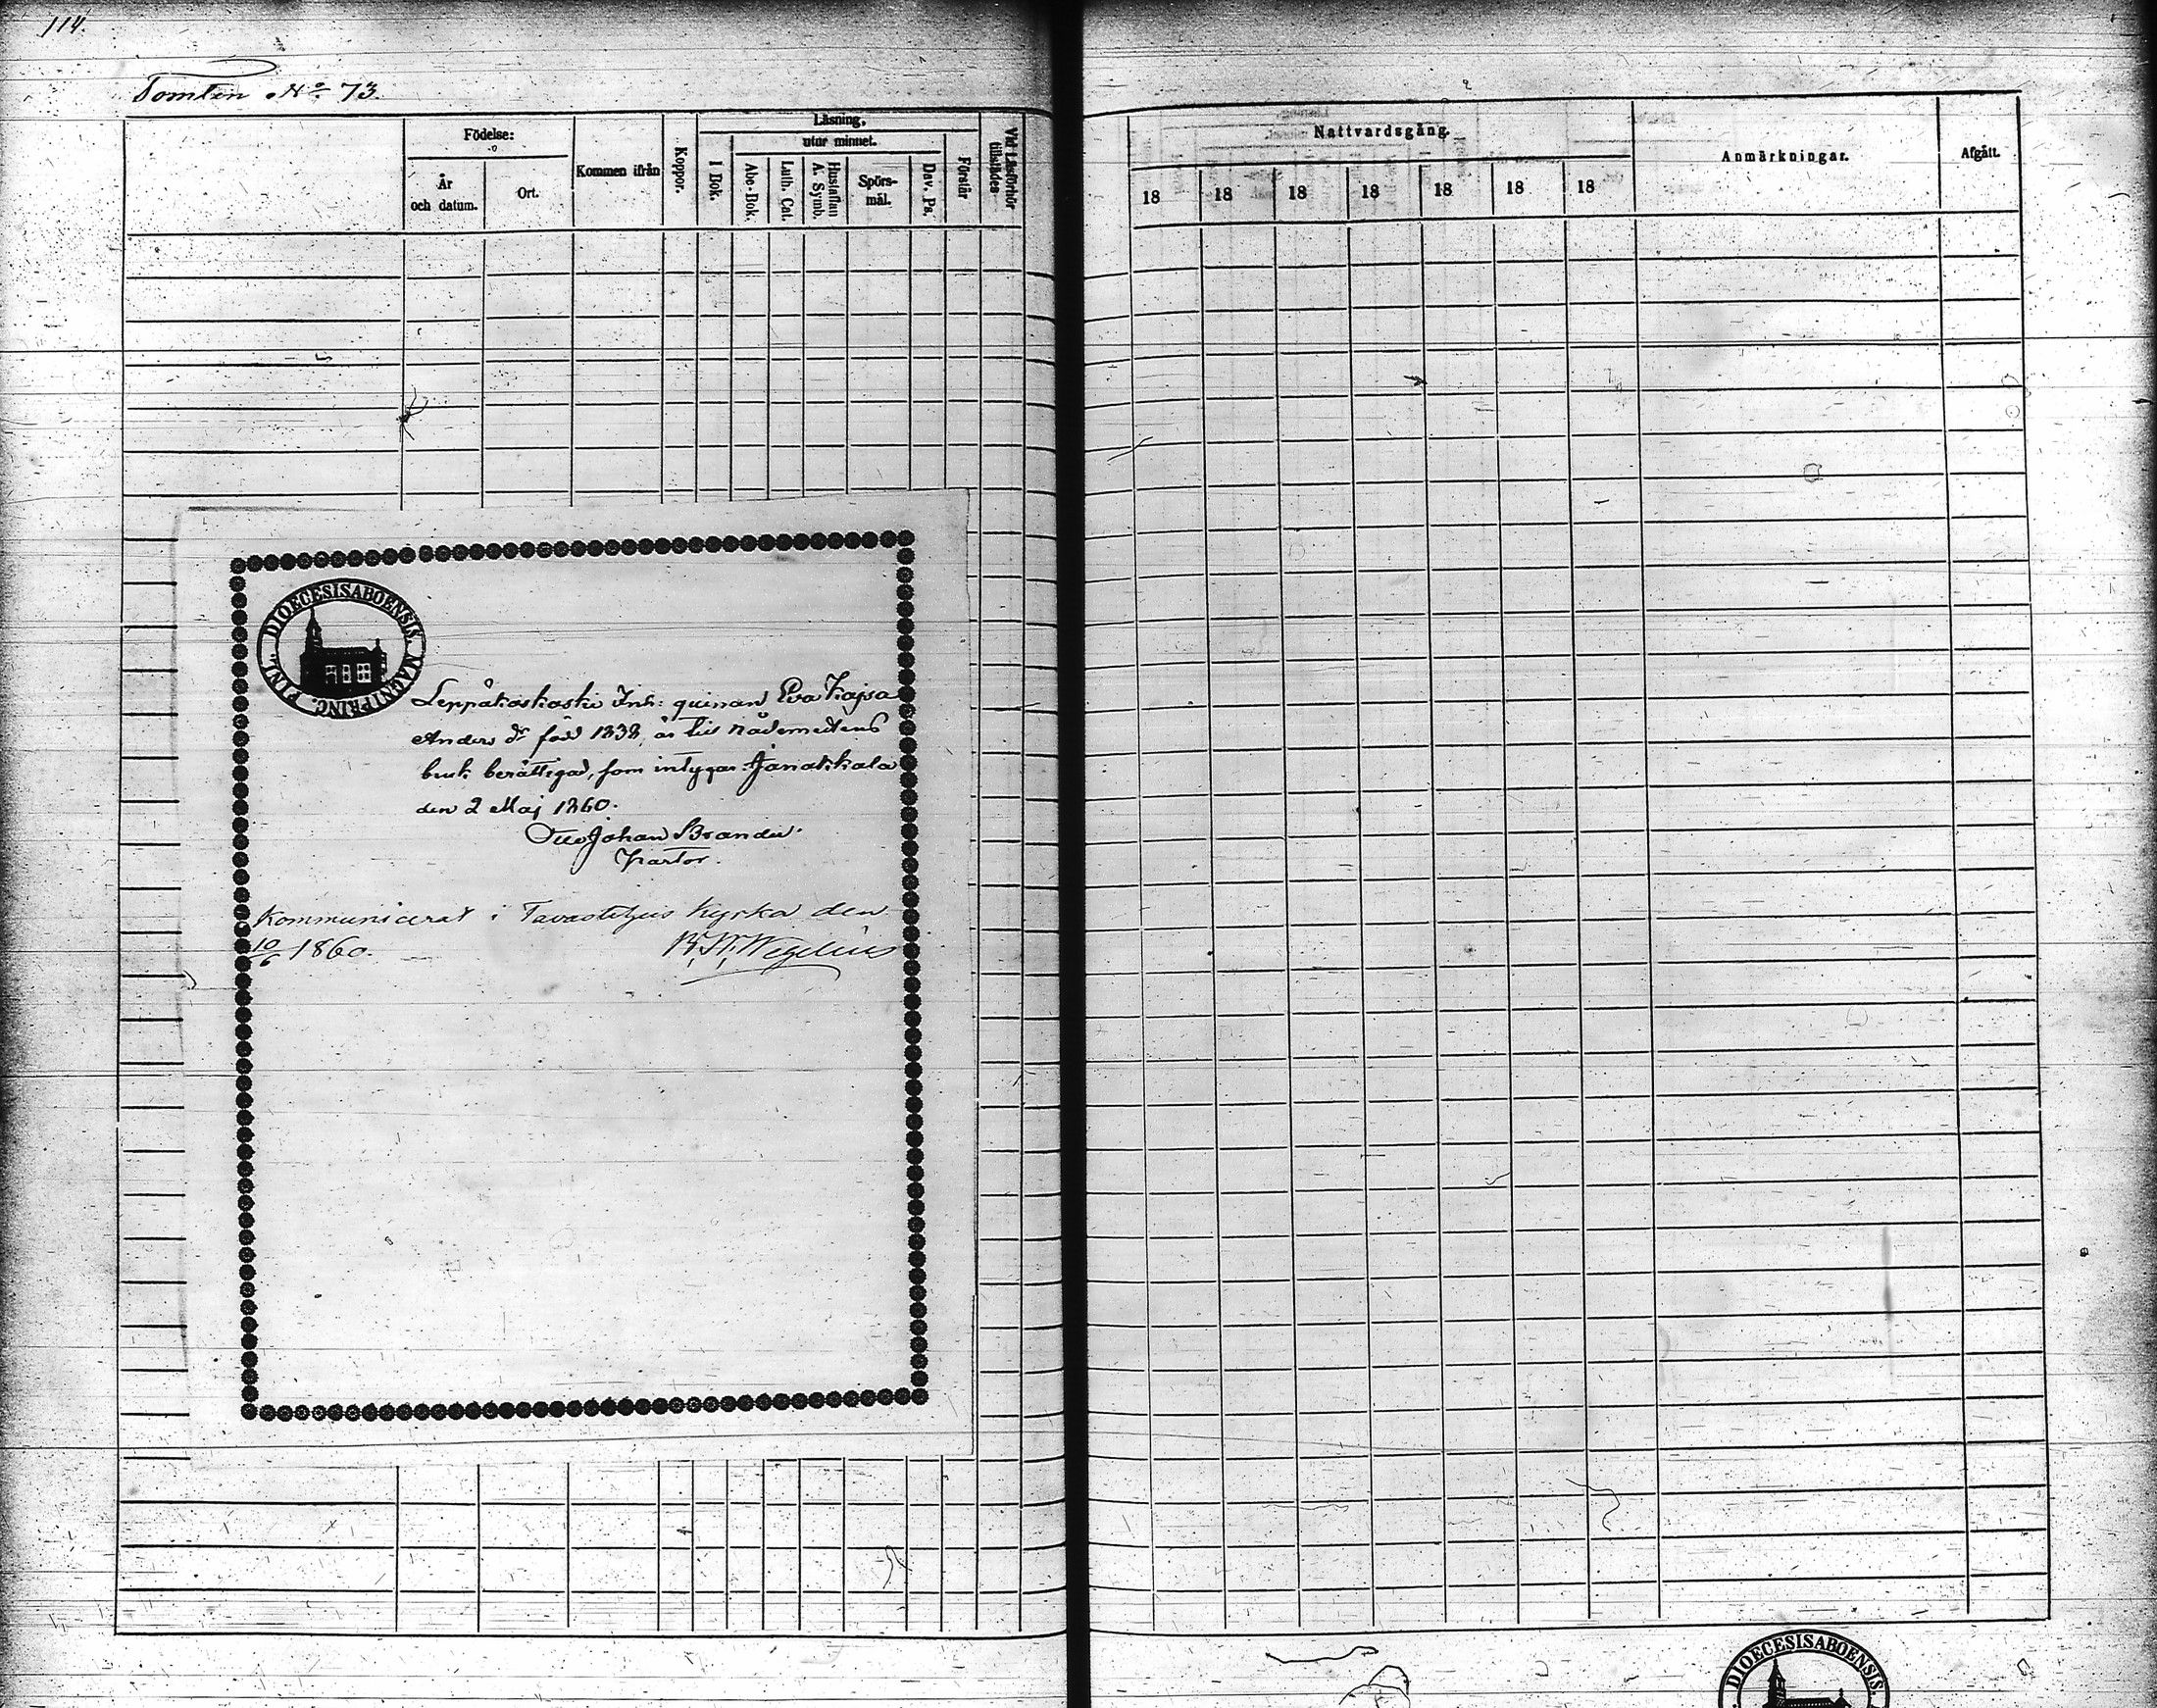 114.
Tomten No 73.
Födelse:
År
och datum.
Ort.
Kommen ifrån
Koppor.
Läsning,
utur minnet.
I Bok.
Abc-Bok.
Luth. Cat.
Hustaflan
A. Symb.
Spörs-
mål.
Dav. Ps.
Förstår
Vid Läsförhör
tillstädes
Nattvardsgång.
18 18 18 18 18 18 18
Anmärkningar.
Afgått.
DIOECESIS ABOENSIS. MAGNI PRINC. FINL.
Leppäkoski Inh: quinnan Eva Kajsa
Anders dr född 1838, är till nådemedlens
bruk berättigad, som intygar. Janakkala
den 2 Maj 1860.
Otto Johan Brander.
Pastor.
Kommunicerat i Tavastehus kyrka den
10/6 1860. Wegelius
DIOECESIS ABOENSIS.